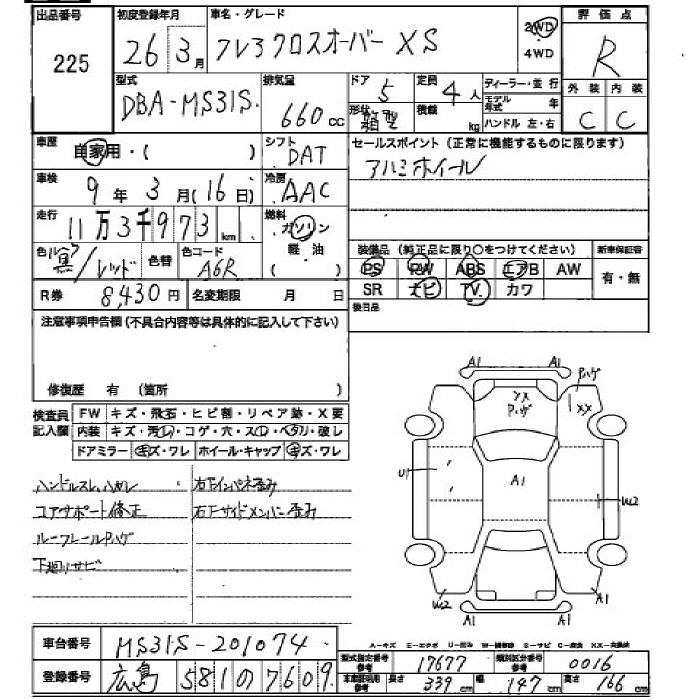 出品番号 225
初度登録年月 26年 3月
車名・グレード フレアクロスオーバー XS
2WD 4WD
評価点 R
外装 内装
C C
型式 DBA-MS31S
排気量 660cc
ドア 5
形状
定員 4人
積載 kg
ディーラー・並行
モデル年式 年
ハンドル 左・右
車歴 自家用・( )
シフト DAT
セールスポイント(正常に機能するものに限ります)
アルミホイール
車検 9年 3月(16日)
冷房 AAC
走行 11万3千973km
燃料 ガソリン 軽油 ( )
色 /レッド
色替
色コード A6R
装備品(純正品に限り○をつけてください)
PS PW ABS エアB AW
SR ナビ TV カワ
新車保証書 有・無
R券 8,430円
名変期限 月 日
後日品
注意事項申告欄(不具合内容等は具体的に記入して下さい)
修復歴 有 (箇所 )
検査員記入欄
FW キズ・飛石・ヒビ割・リペア跡・X要
内装 キズ・汚レ・コゲ・穴・スレ・ベタリ・破し
ドアミラー キズ・ワレ ホイール・キャップ キズ・ワレ
ハンドルスレ、ハガレ
コアサポート修正
ルーフレールPハゲ
下廻りサビ
右下インパネ歪み
右下サイドメンバー歪み
A1 A1
Pハゲ
XX
YX
Pハゲ
U1
A1
W2
W2
A1
A1 A1
A-キズ E-エクボ U-凹み W-補修跡 S-サビ C-腐食 XX-交換済
車台番号 MS31S-201074
登録番号 広島 581の7609
型式指定番号 参考 17677
類別区分番号 参考 0016
車庫証明用 参考 長さ 339cm 幅 147cm 高さ 166cm